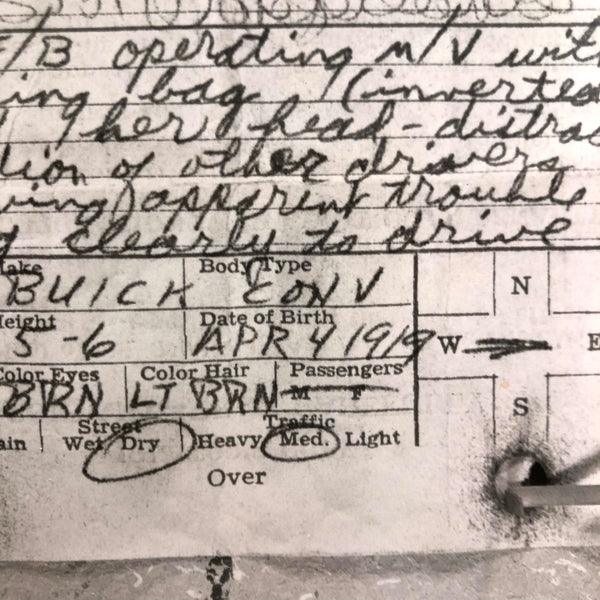 F/B operating m/v with
ing bag (inverted
her head-distrac
tion of other drivers
ving) apparent trouble
g clearly to drive
Make Body Type
BUICK CONV
Height Date of Birth
5-6 APR 4 1919
Color Eyes Color Hair Passengers
BRN LT BRN M F
Street Traffic
ain Wet Dry Heavy Med. Light
Over
N
W E
S